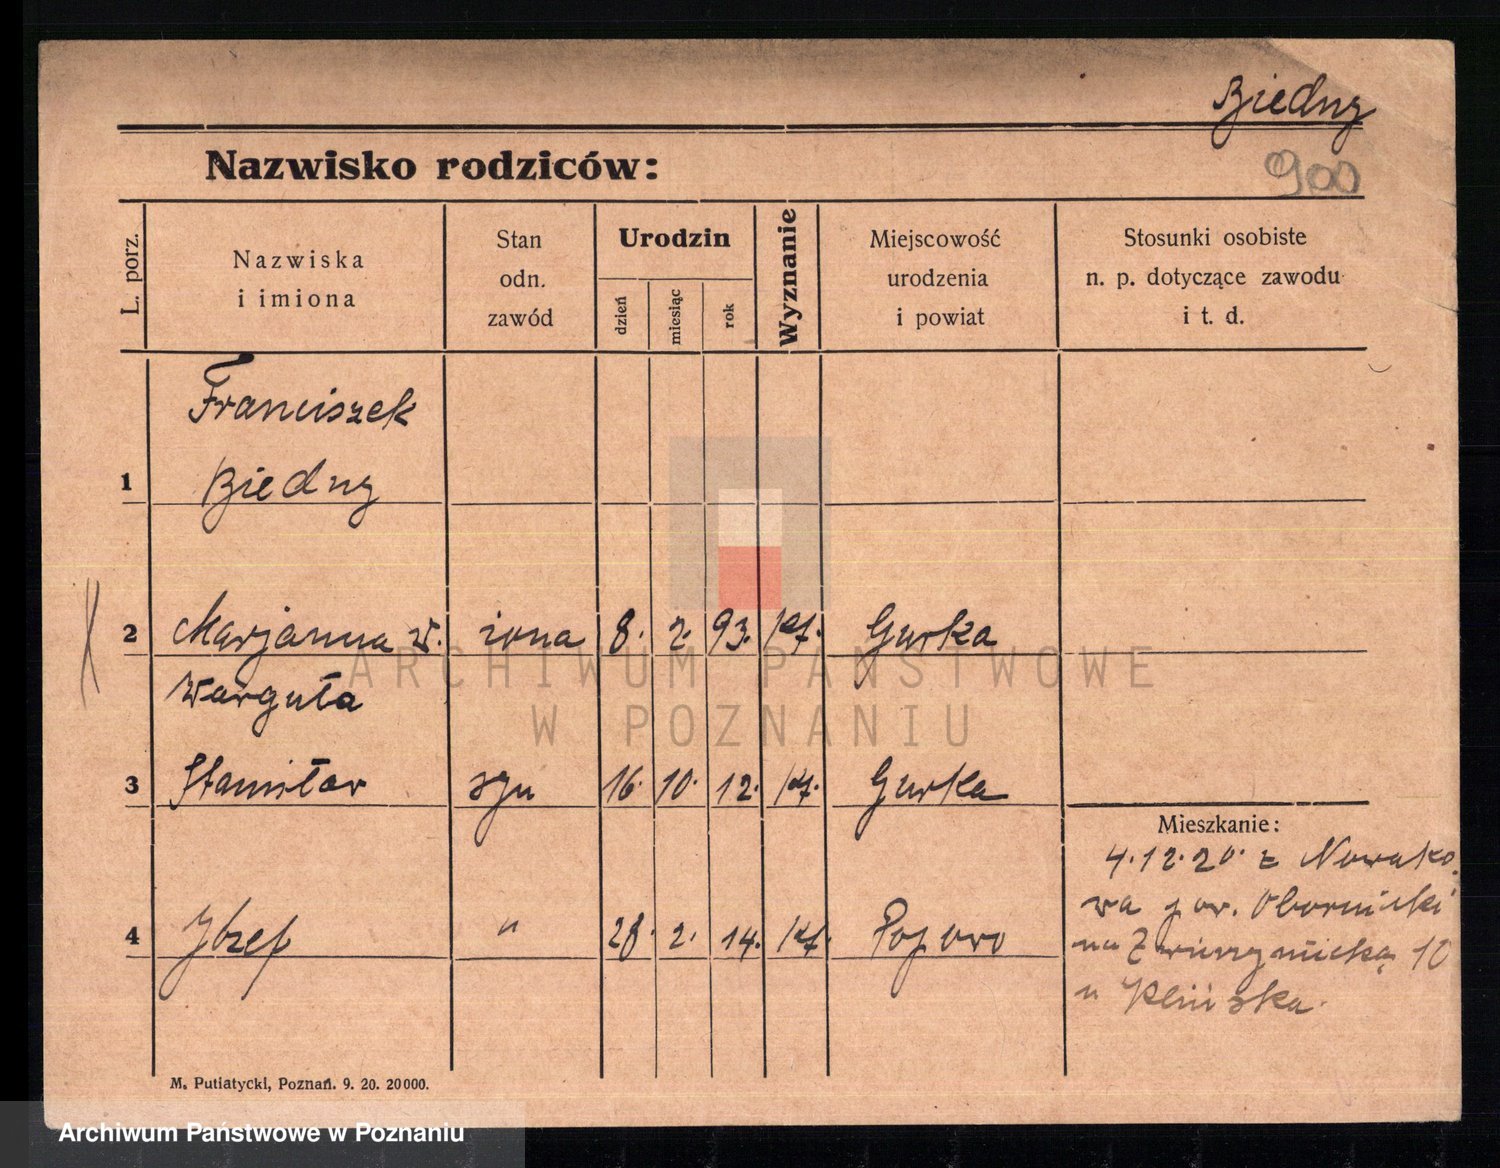 Biedny
900
Nazwisko rodziców:
L. porz.
Nazwiska
i imiona
Stan
odn.
zawód
Urodzin
dzień
miesiąc
rok
Wyznanie
Miejscowość
urodzenia
i powiat
Stosunki osobiste
n. p. dotyczące zawodu
i t. d.
Franciszek
1 Biedny
2 Marjanna z. żona 8. 2. 93. kat. Gurka
Warguła
3 Stanisław syn 16. 10. 12. kat. Gurka
Mieszkanie:
4.12.20. z Nowako
wa pow. Obornicki
4 Józef " 28. 2. 14. kat. Popowo
na Zwierzyniecką 10
u Klińska.
M. Putiatycki, Poznań. 9. 20. 20000.
ARCHIWUM PAŃSTWOWE
W POZNANIU
Archiwum Państwowe w Poznaniu